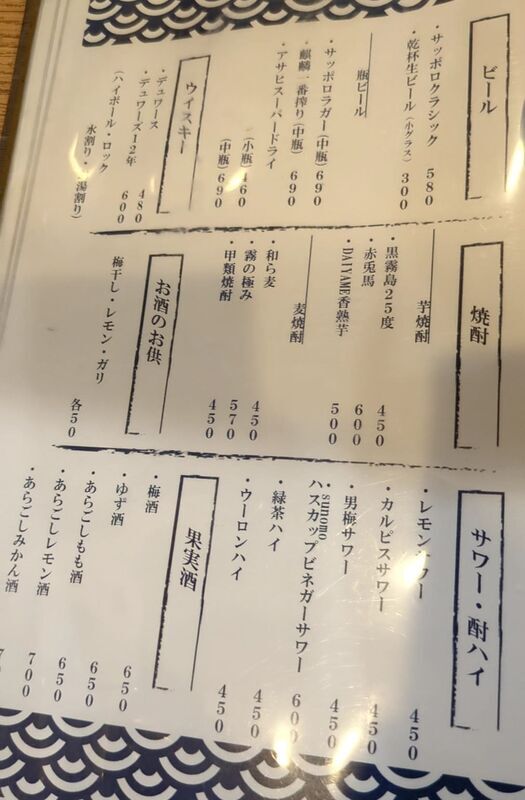 ビール
・サッポロクラシック 580
・乾杯生ビール(小グラス) 300
瓶ビール
・サッポロラガー(中瓶) 690
・麒麟一番搾り(中瓶) 690
・アサヒスーパードライ
(小瓶) 460
(中瓶) 690
ウイスキー
・デュワーズ 480
・デュワーズ12年 600
(ハイボール・ロック
水割り・お湯割り)
焼酎
芋焼酎
・黒霧島25度 450
・赤兎馬 600
・DAIYAME香熟芋 500
麦焼酎
・和ら麦 450
・霧の極み 570
・甲類焼酎 450
お酒のお供
梅干し・レモン・ガリ 各50
サワー・酎ハイ
・レモンサワー 450
・カルピスサワー 450
・男梅サワー 450
・sumomo
ハスカップビネガーサワー 600
・緑茶ハイ 450
・ウーロンハイ 450
果実酒
・梅酒 650
・ゆず酒 650
・あらごしもも酒 650
・あらごしレモン酒 700
・あらごしみかん酒